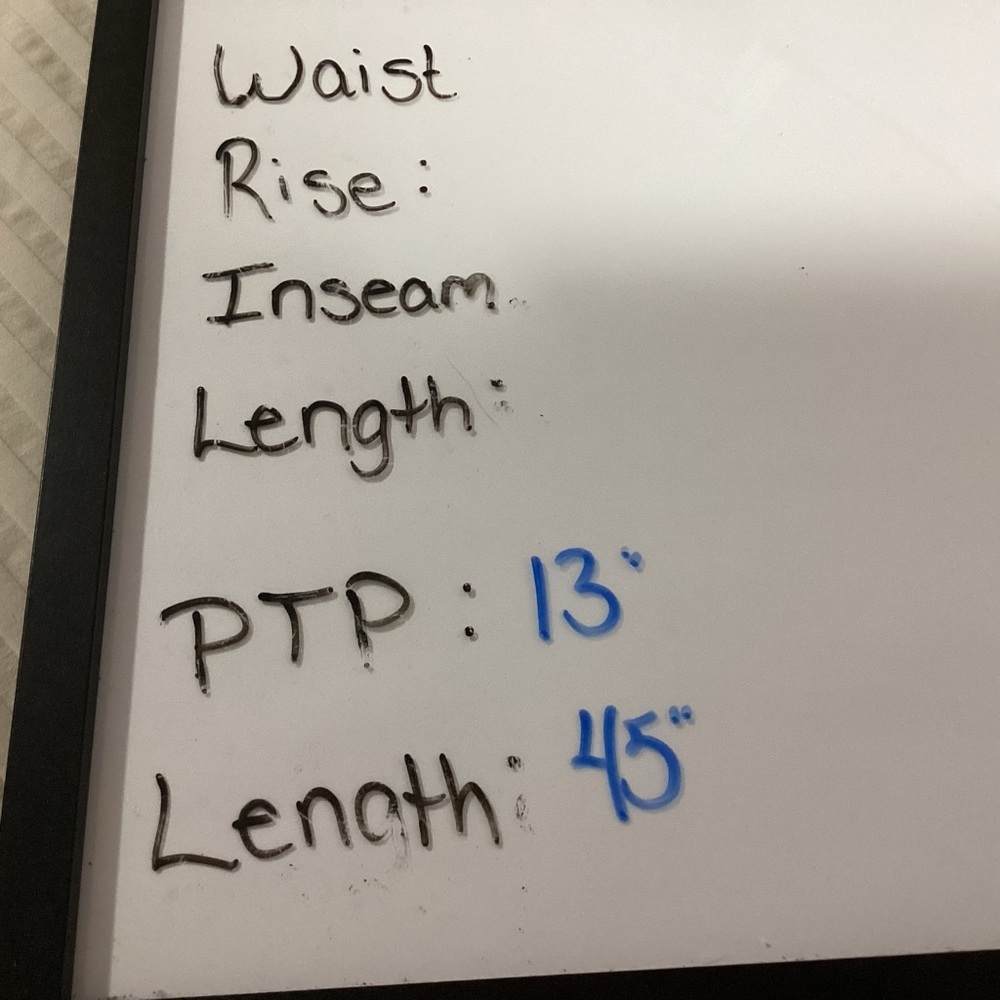 Waist
Rise:
Inseam
Length:
PTP: 13"
Length: 45"